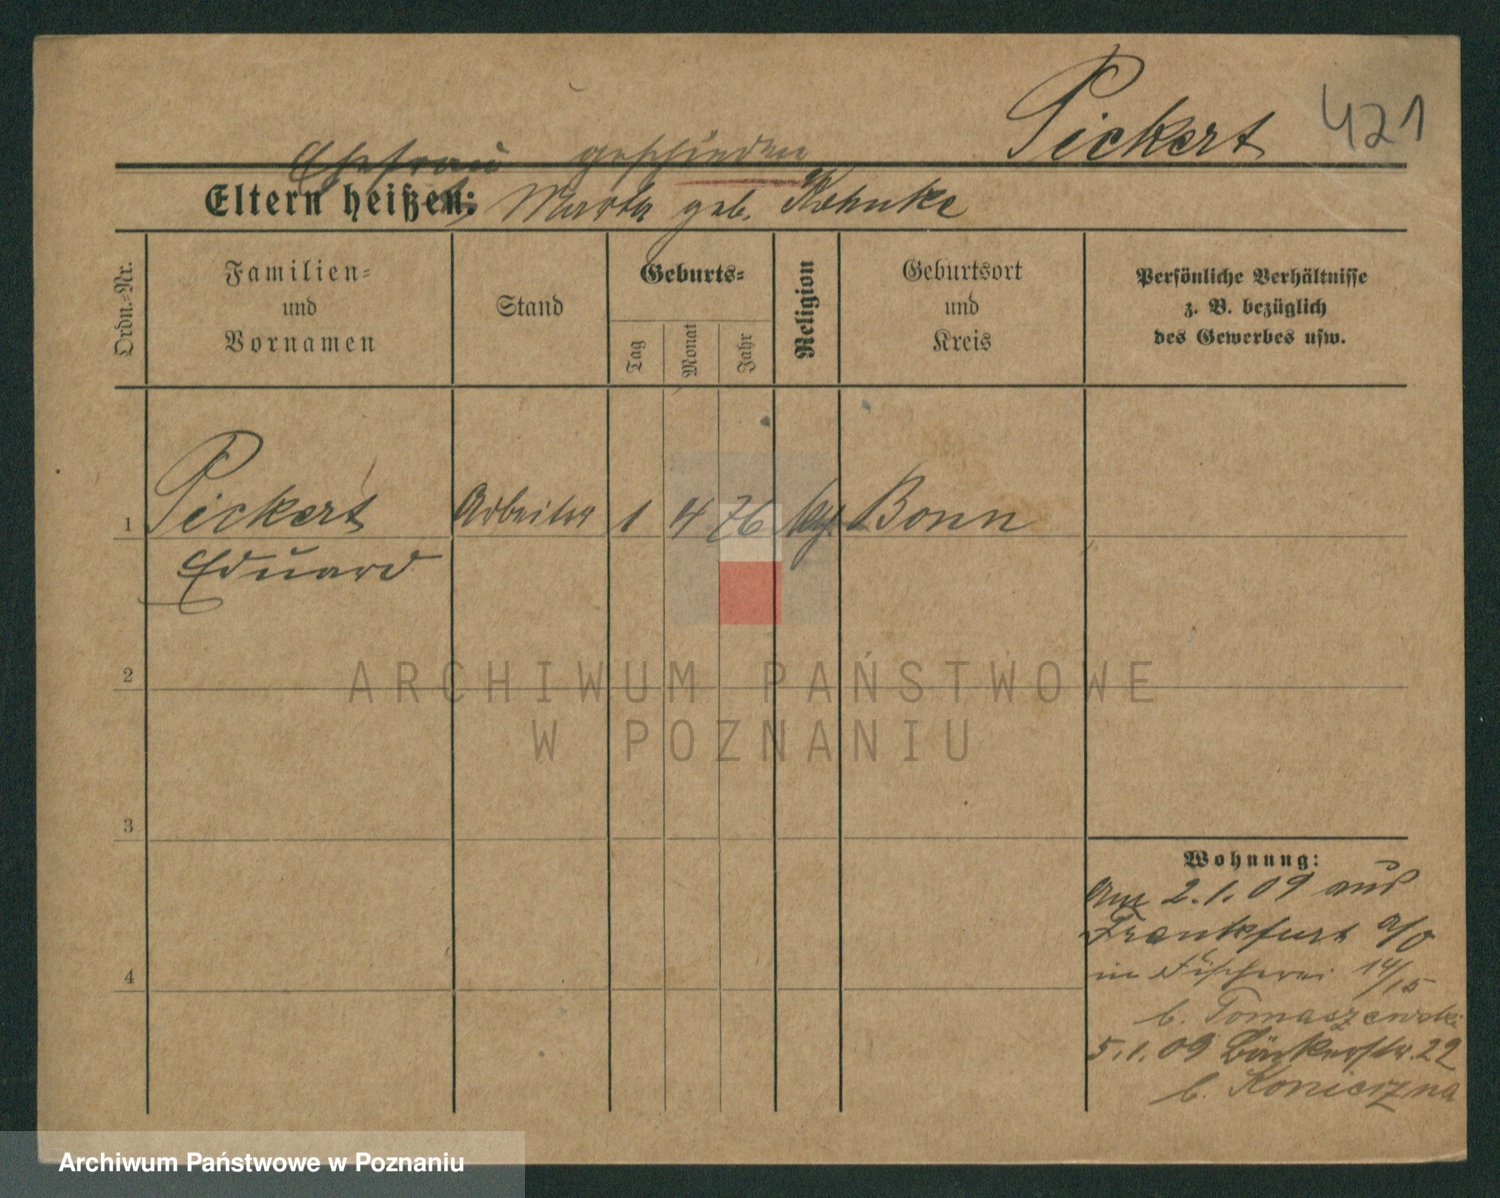 Pickert 421
Ehefrau geschieden
Eltern heißen: Marta geb. Kohnke
Ordn.=Nr.
Familien=
und
Vornamen
Stand
Geburts=
Tag
Monat
Jahr
Religion
Geburtsort
und
Kreis
Persönliche Verhältnisse
z. B. bezüglich
des Gewerbes usw.
1 Pickert Arbeiter 1 4 76 Bonn
Eduard
2
ARCHIWUM PAŃSTWOWE
W POZNANIU
3
Wohnung:
Am 2.1.09 aus
Frankfurt a/O
in Fischerei 14/15
b. Tomaszewski
5.1.09 Bäckerstr. 22
b. Konieczna
4
Archiwum Państwowe w Poznaniu